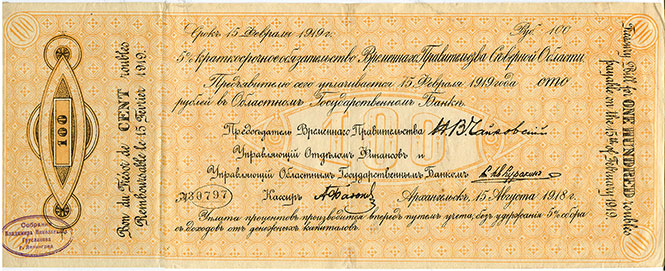 Срокъ 15 Февраля 1919 г. Руб. 100
5% краткосрочное обязательство Временнаго Правительства Северной Области.
Предъявителю сего уплачивается 15 Февраля 1919 года сто
рублей въ Областномъ Государственномъ Банкѣ.
Председатель Временнаго Правительства Н.В. Чайковский
Управляющий Отделомъ Финансовъ и
Управляющий Областнымъ Государственнымъ Банкомъ
№ 30797 Кассиръ Архангельскъ, 15 Августа 1918 г.
Уплата процентовъ производится впередъ путемъ учета, безъ удержания 5% сбора
съ доходовъ отъ денежныхъ капиталовъ.
100
Bon du Trésor de CENT roubles
Remboursable le 15 Février 1919.
Treasury Bill of ONE HUNDRED roubles
payable on the 15th of February 1919.
Собрание
Владимира
г. Ленинград